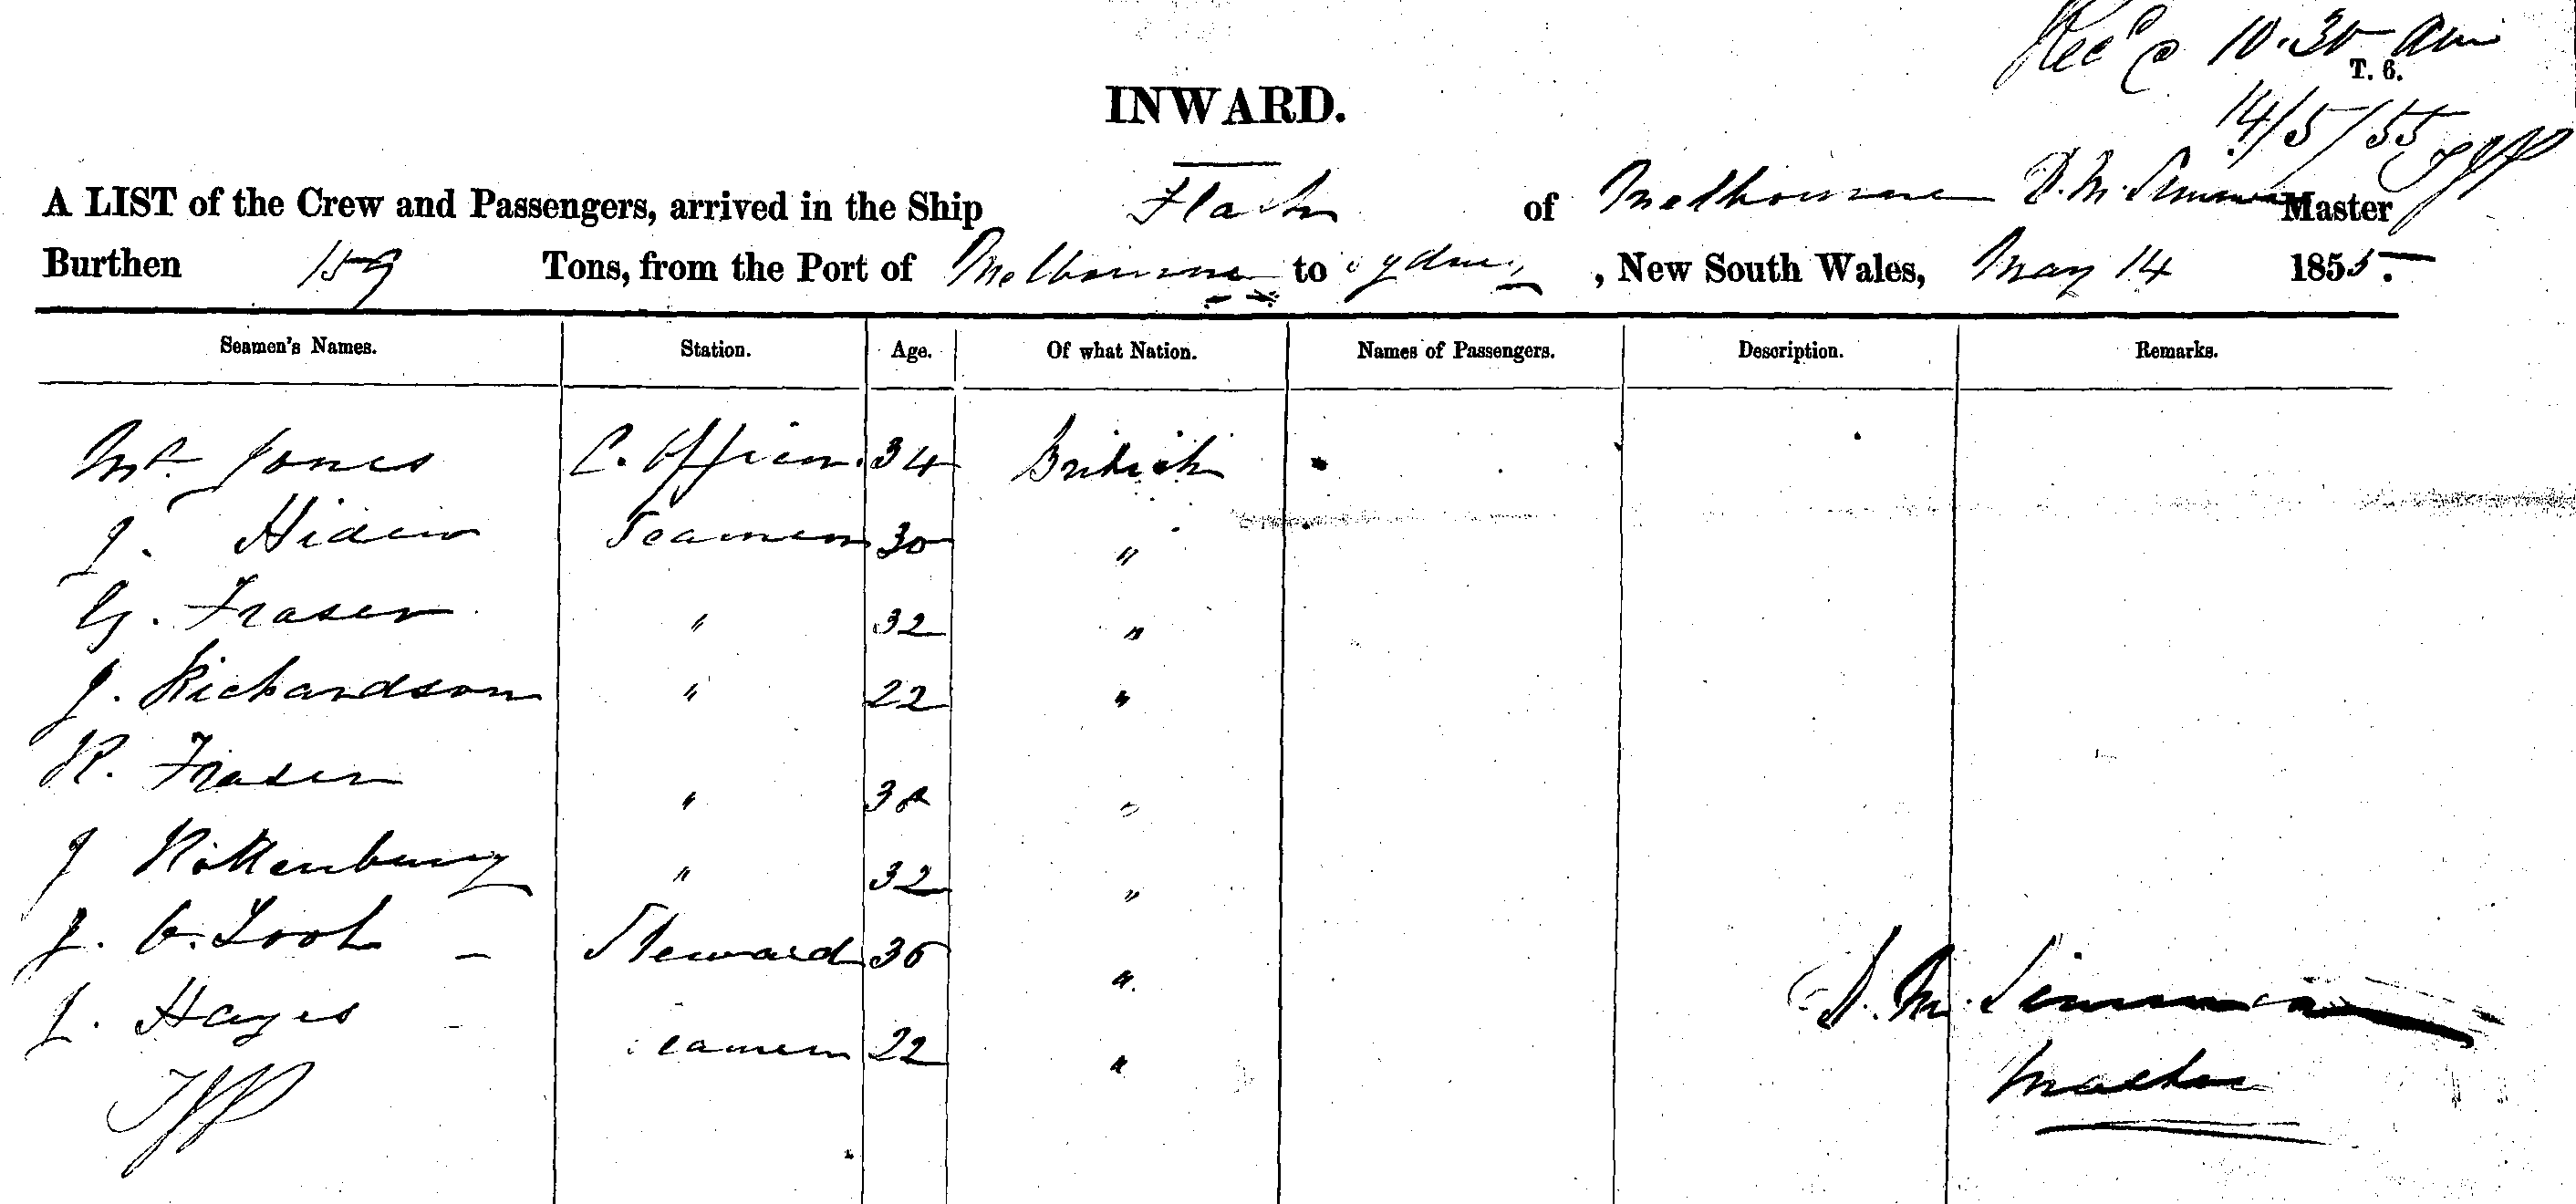 Recd @ 10.30 am
T. 6.
INWARD.
14/5/55
A LIST of the Crew and Passengers, arrived in the Ship Flash of Melbourne D. M. Simmons Master
Burthen 159 Tons, from the Port of Melbourne to Sydney, New South Wales, May 14 1855.
Seamen's Names. Station. Age. Of what Nation. Names of Passengers. Description. Remarks.
Mr. Jones C. Officer. 34 British
J. Seamen 30 "
G. Fraser " 32 "
J. Richardson " 22 "
R. Fraser " "
J Rottenbury " 32 "
J. Steward 36 "
J. Hayes Seamen 22 "
D. M. Simmons
Master